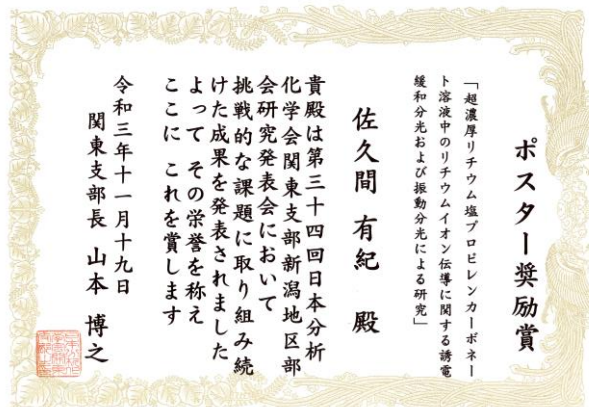 ポスター奨励賞
「超濃厚リチウム塩プロピレンカーボネー
ト溶液中のリチウムイオン伝導に関する誘電
緩和分光および振動分光による研究」
佐久間 有紀 殿
貴殿は第三十四回日本分析
化学会関東支部新潟地区部
会研究発表会において
挑戦的な課題に取り組み続
けた成果を発表されました
よって その栄誉を称え
ここに これを賞します
令和三年十一月十九日
関東支部長 山本 博之